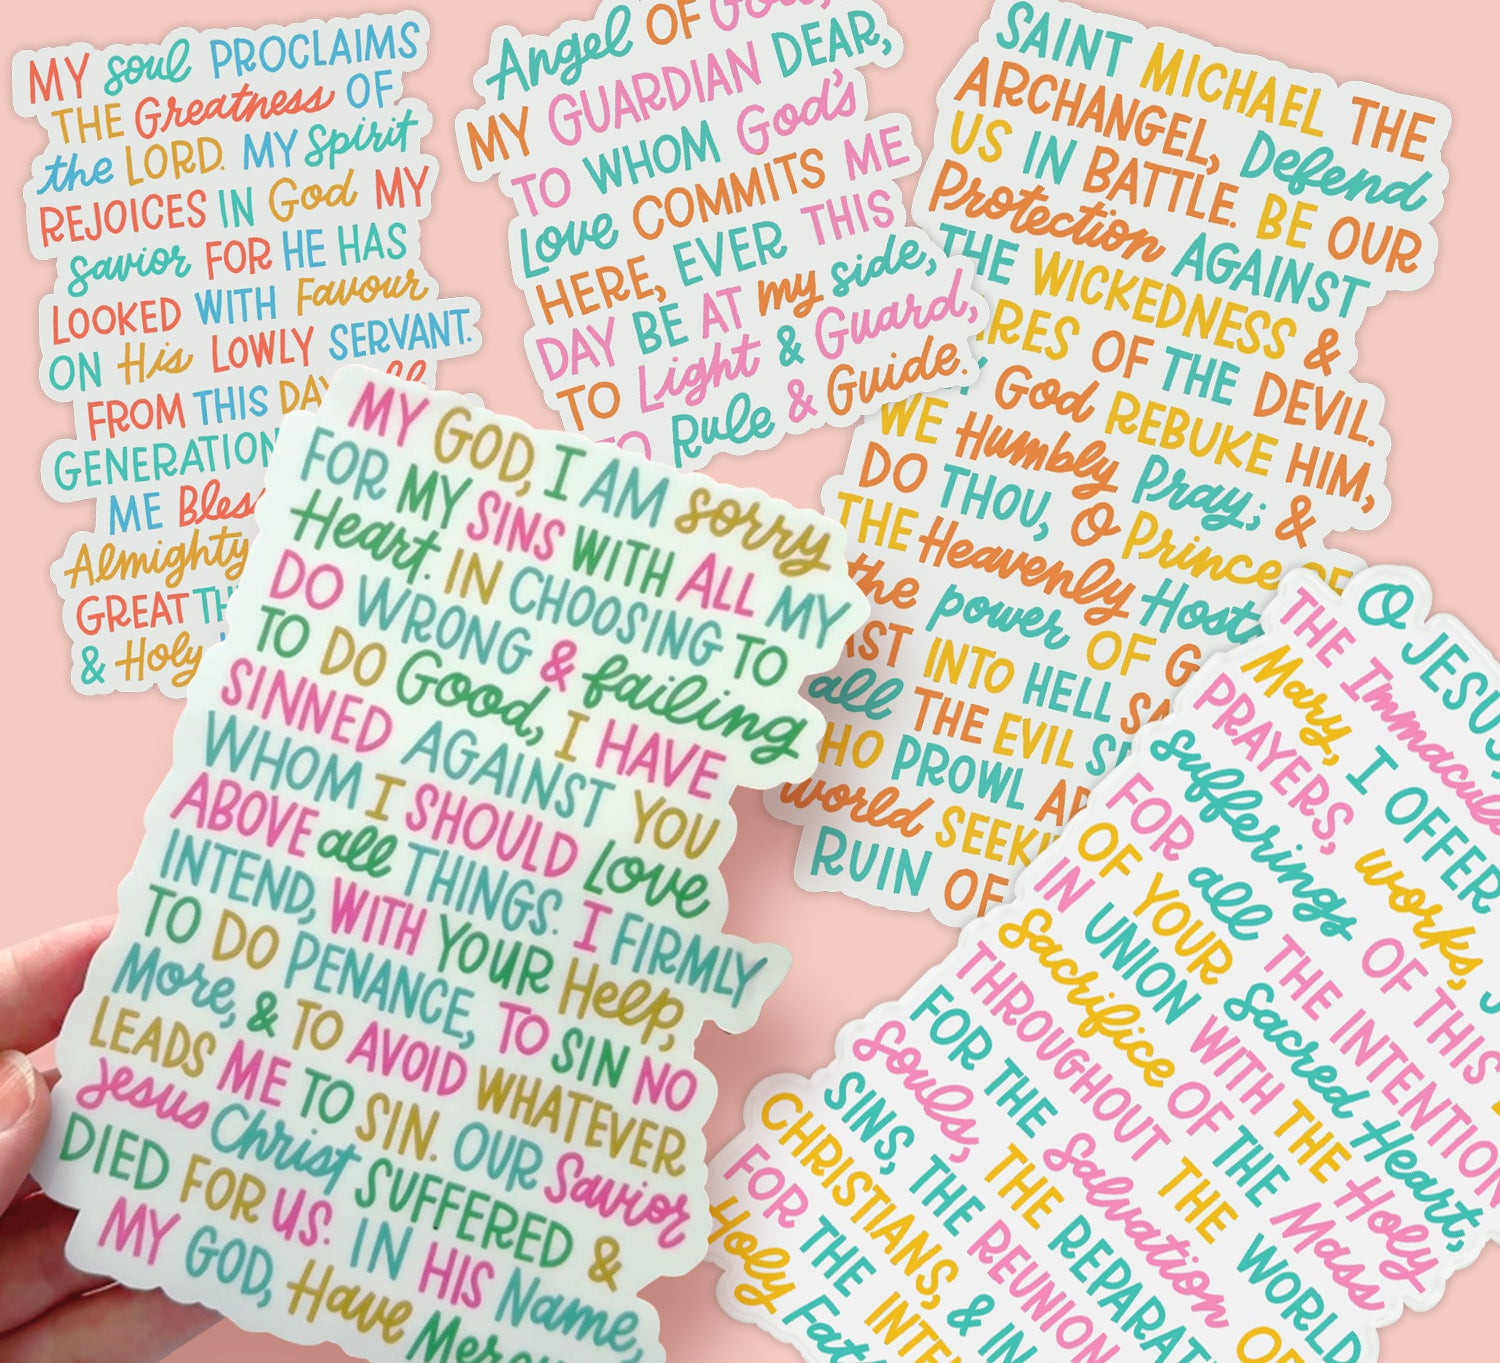 MY soul PROCLAIMS
THE Greatness OF
the LORD. MY Spirit
REJOICES IN God MY
Savior FOR HE HAS
LOOKED WITH Favour
ON His LOWLY SERVANT.
FROM THIS DAY all
GENERATION
ME Bles
Almighty
GREAT TH
& Holy
Angel OF God,
MY GUARDIAN DEAR,
TO WHOM God's
Love COMMITS ME
HERE, EVER THIS
DAY BE AT my side,
TO Light & Guard,
TO Rule & Guide.
SAINT MICHAEL THE
ARCHANGEL, Defend
US IN BATTLE. BE OUR
Protection AGAINST
THE WICKEDNESS &
RES OF THE DEVIL.
God REBUKE HIM,
WE Humbly Pray; &
DO THOU, O Prince OF
THE Heavenly Host
the power OF G
ST INTO HELL SA
all THE EVIL S
HO PROWL AB
world SEEKI
RUIN OF
MY GOD, I AM sorry
FOR MY SINS WITH ALL MY
Heart. IN CHOOSING TO
DO WRONG & failing
TO DO Good, I HAVE
SINNED AGAINST YOU
WHOM I SHOULD Love
ABOVE all THINGS. I FIRMLY
INTEND, WITH YOUR Help,
TO DO PENANCE, TO SIN NO
More, & TO AVOID WHATEVER
LEADS ME TO SIN. OUR Savior
Jesus Christ SUFFERED &
DIED FOR US. IN HIS Name,
MY GOD, Have Mercy
O JESUS
THE Immacul
Mary, I OFFER
PRAYERS, works, J
Sufferings OF THIS
FOR all THE INTENTION
OF YOUR Sacred Heart,
IN UNION WITH THE Holy
Sacrifice OF THE Mass
THROUGHOUT THE WORLD
FOR THE Salvation OF
Souls, THE REPARAT
SINS, THE REUNION
CHRISTIANS, & IN
FOR THE INTE
Holy Fat